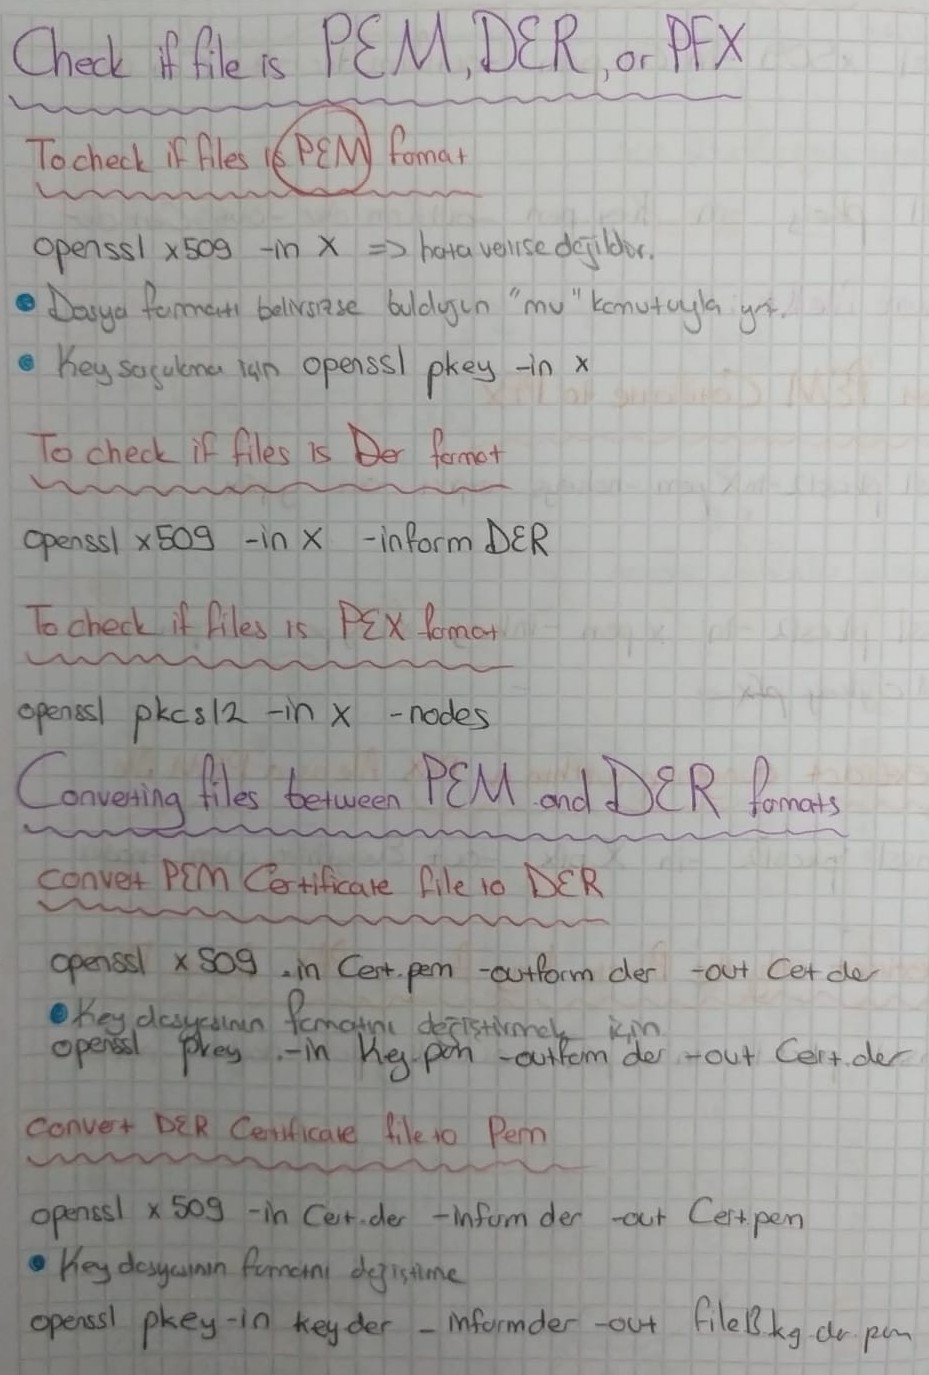 Check if file is PEM, DER, or PFX
To check if files is PEM fomat
openssl x509 -in X => hata verirse değildir.
Dosya formatı belirsizse bulduğun "mv" komutuyla
Key için openssl pkey -in x
To check if files is Der fomat
openssl x509 -in X -inform DER
To check if files is PEX fomat
openssl pkcs12 -in X -nodes
Converting files between PEM and DER fomats
Convert PEM Certificate file to DER
openssl x509 -in Cert.pem -outform der -out Cert der
Key dosyasının fomatını değiştirmek için
openssl pkey -in Key.pem -outfom der -out Cert.der
Convert DER Certificate file to Pem
openssl x509 -in Cert.der -infom der -out Cert.pem
Key dosyasının fomatını değiştime
openssl pkey -in key der -informder -out